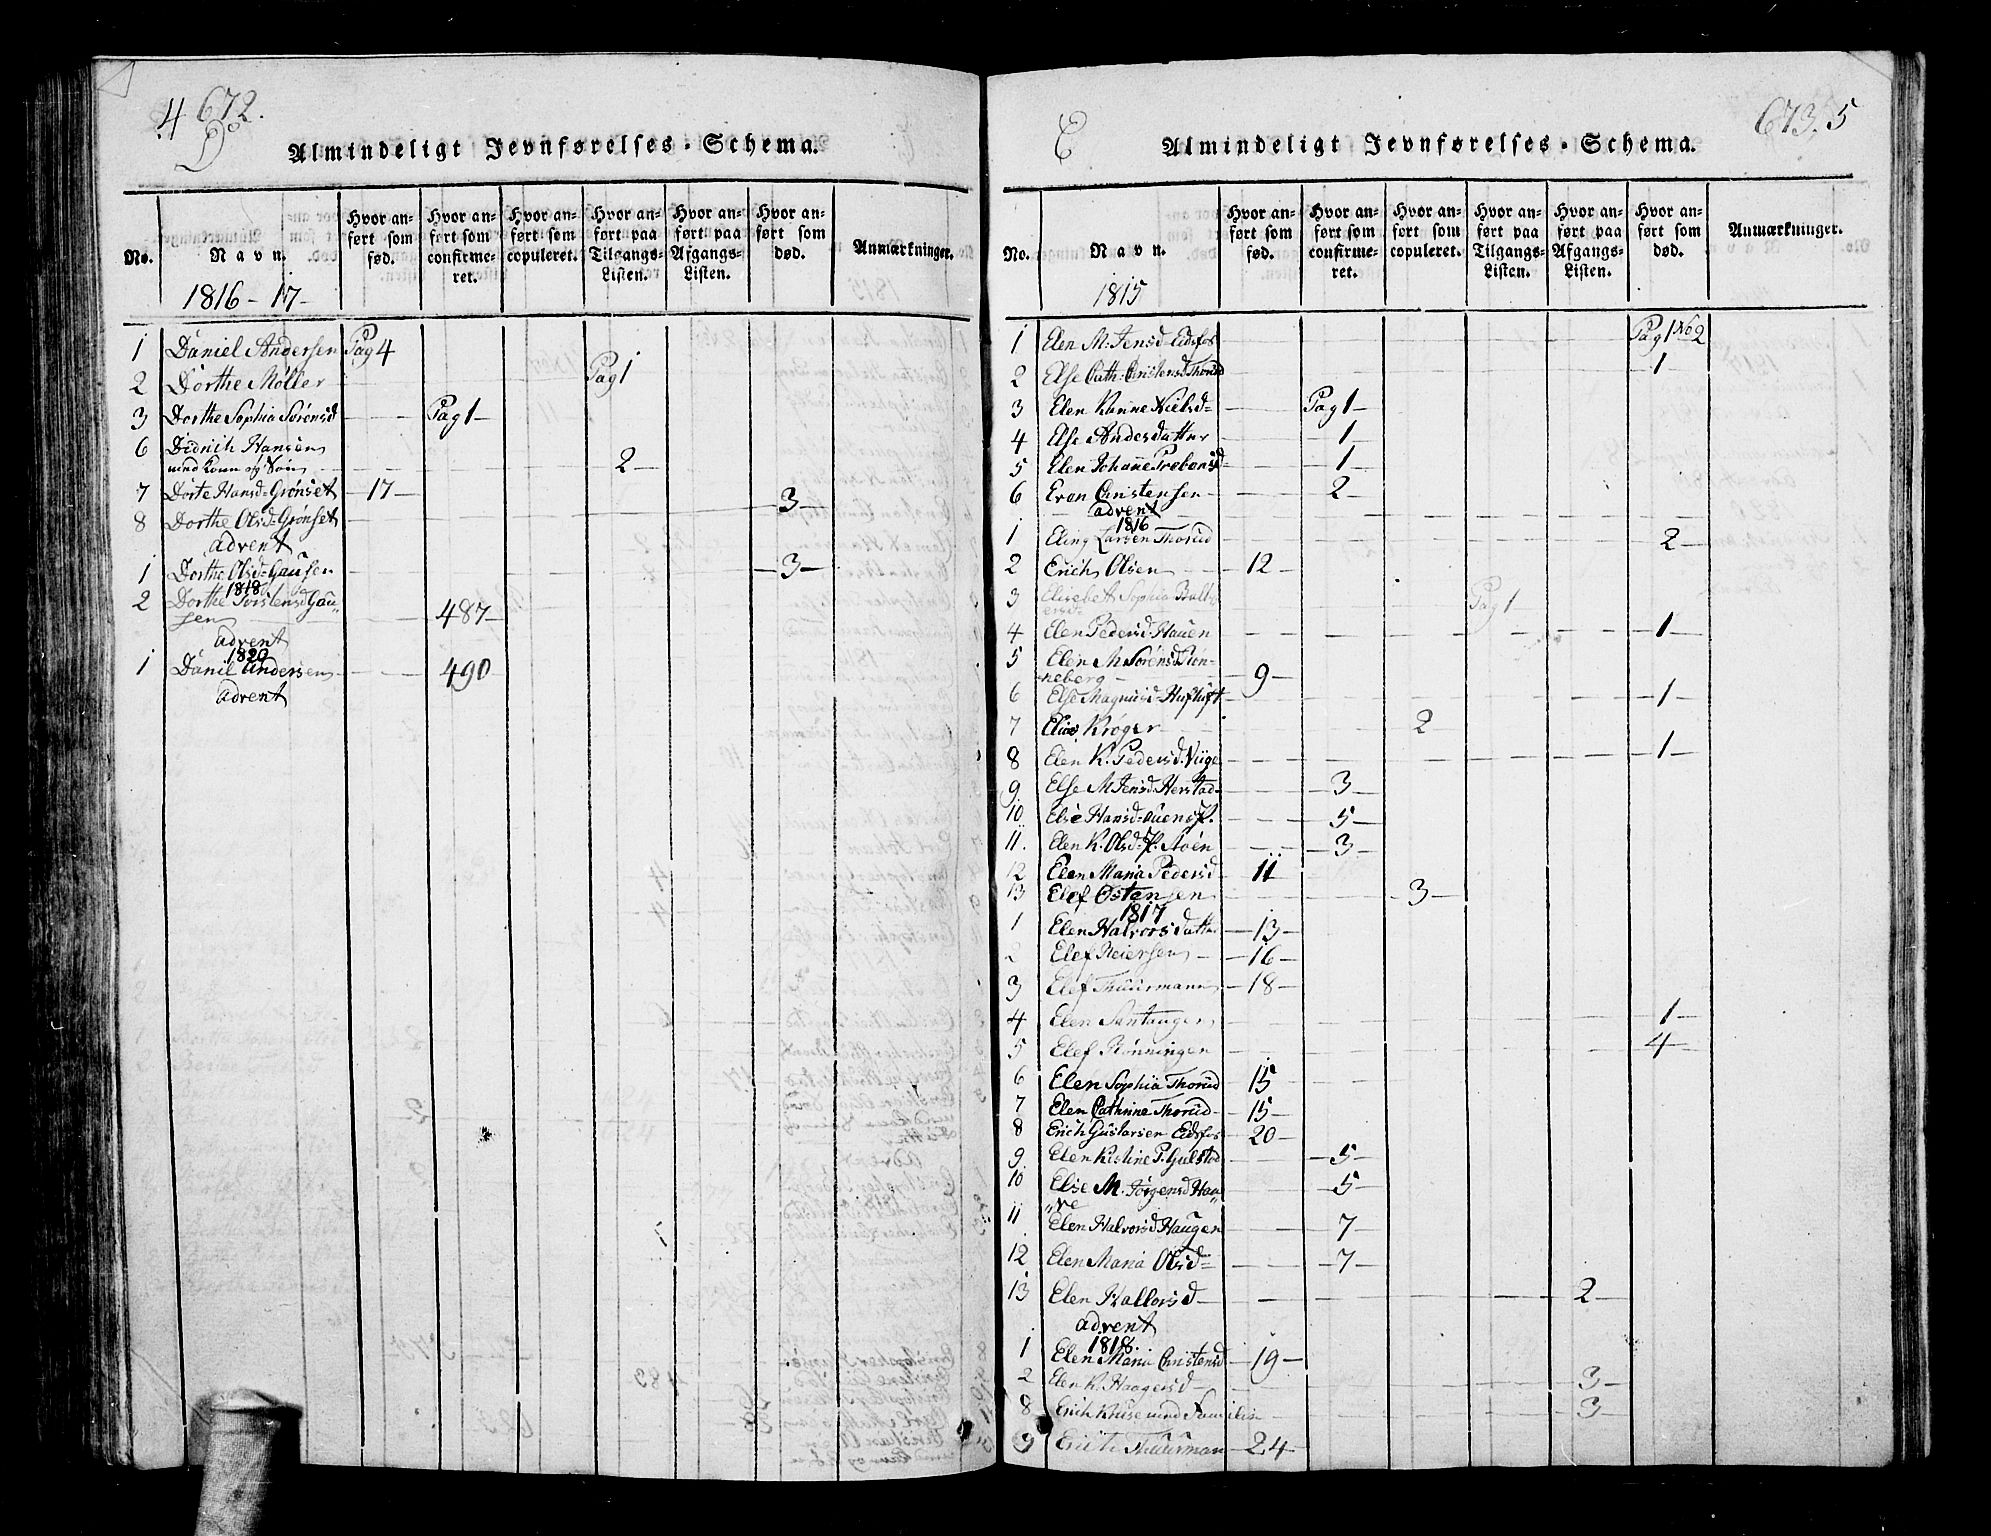 4 672.
D
Almindeligt Jevnførelses-Schema.
No.
Navn.
Hvor anført som fød.
Hvor anført som confirmeret.
Hvor anført som copuleret.
Hvor anført paa Tilgangs-Listen.
Hvor anført paa Afgangs-Listen.
Hvor anført som død.
Anmærkninger.
1816-17-
1 Daniel Andersen Pag 4
2 Dorthe Møller Pag 1
3 Dorthe Sophia Sørensd Pag 1-
6 Didrich Hansen
med Kone og Søn 2-
7 Dorte Hansd= Grønset -17-
8 Dorthe Olsd= Grønset 3-
advent
1 Dorthe Olsd= Gausen -3-
1818
2 Dorthe Torstensd Gau„
sen 487-
advent
1820
1 Danil Andersen 490
advent
E
673. 5
Almindeligt Jevnførelses-Schema.
No.
Navn.
Hvor anført som fød.
Hvor anført som confirmeret.
Hvor anført som copuleret.
Hvor anført paa Tilgangs-Listen.
Hvor anført paa Afgangs-Listen.
Hvor anført som død.
Anmærkninger.
1815
1 Elen M: Jensd= Eidsfos Pag 1 No 2
2 Else Cath: Christensd Thorud 1-
3 Elen Karine Nielsd= Pag 1-
4 Else Andersdatter 1-
5 Elen Johanne Prebensd= 1-
6 Even Christensen 2-
advent
1816
1 Eling Larsen Thorud 2-
2 Erich Olsen 12-
3 Elisebet Sophia
Pag 1
4 Elen Pedersd= Hauen 1-
5 Elen M Sørensd Røn-
neberg 9-
6 Else Magnusd= 1-
7 Elias Krøger 2
8 Elen K. Pedersd. Viige 1-
9 Else M Jensd= Herstad 3-
10 Else Hansd= 5-
11. Elen K. Olsd= P. Moen 3-
12 Elen Maria Pedersd 11
13 Elef Ostensen 3-
1817
1 Elen Halvorsdatter -13-
2 Elef Reiersen -16-
3 Elef Thuurmann -18-
4 Elen 1-
5 Elef Rønningen 4-
6 Elen Sophia Thorud 15
7 Elen Cathrine Thorud -15-
8 Erich Gustavsen Eidsfos 20-
9 Elen Kistine P. Gulstad 5-
10 Else M. Jørgensd Hau„
„ve 5-
11 Elen Halvorsd Haugen 7
12 Elen Maria Olsd= -7-
13 Elen Hallorsd- 2-
advent
1818.
1 Elen Maria Christensd -19-
2 Elen K. Haagensd 3-
8 Erich Kruse med Familie 3-
9 Erich Thuurman -24-